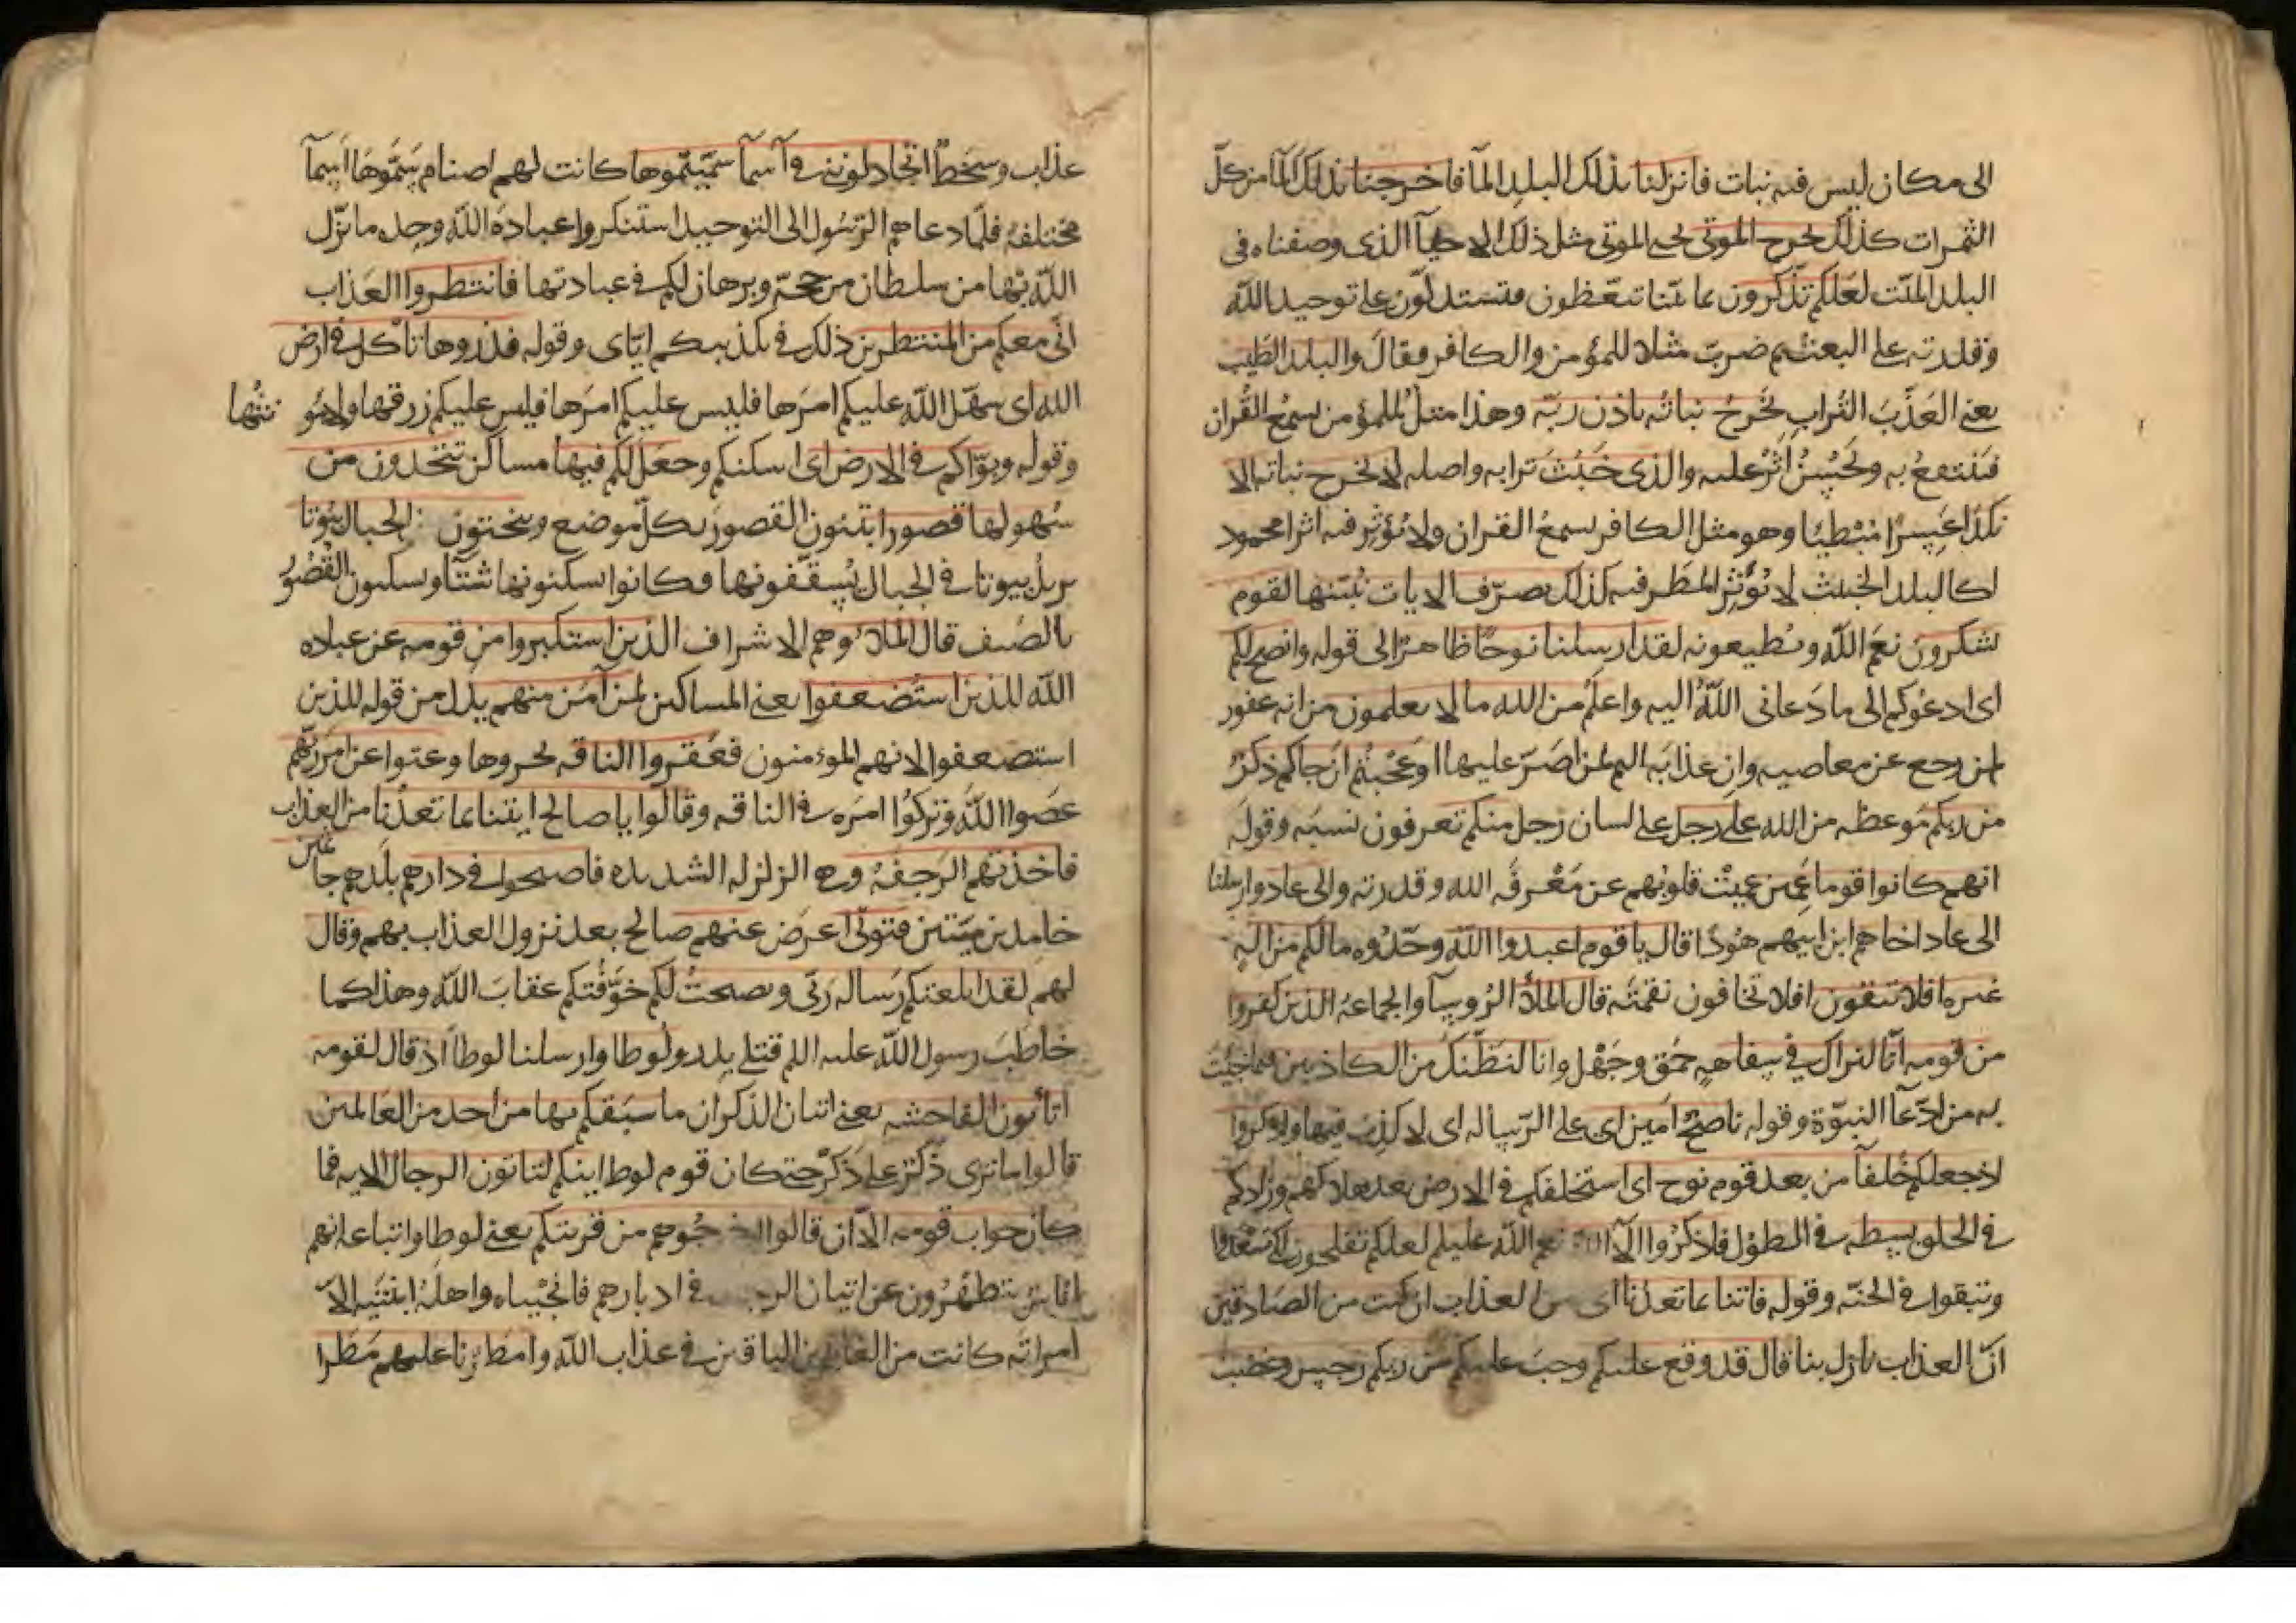 الى مكان ليس فيه نبات فانزلنا بذلك البلد المآ فاخرجنا بذلك المآ من كلّ
الثمرات كذلك نخرج الموتى نحيي الموتى مثل ذلك الاحيآ الذى وصفناه فى
البلد الميّت لعلكم تذّكرون بما بيّنا تتعّظون فتستدلّون على توحيد الله
وقدرته على البعث ثم ضرب مثلا للمؤمن والكافر فقال والبلد الطيب
يعني العَذْبَ التُراب يَخْرُجُ نباتُه باذن ربّه وهذا مثلُ المؤمن يسمعُ القُران
فينتفعُ به ويَحْسُنُ اثرُ عليه والذى خَبُثَ ترابه واصله لا يخرج نباته الا
نكدًا عَسِرًا مُبْطِيًا وهو مثل الكافر يسمعُ القران ولا يؤثر فيه اثرا محمود
اكالبلد الخبيث لا يُؤثِّرُ المطر فيه كذلك نصرّف الايات نُبيّنها لقوم
يشكرون نعَم الله ويطيعونه لقد ارسلنا نوحًا ظاهرٌ الى قوله وانصح لكم
اى ادعُوكم الى ما دَعانى اللهُ اليه واعلمُ من الله ما لا يعلمون من انه غفور
لمن رجع عن معاصيه وان عذابَه اليم لمن اصَرّ عليها اوَعَجْبتُم ان جاكم ذكرٌ
من ربكم مَوعظه من الله على رجل على لسان رجل منكم تعرفون نسبَه وقوله
انهم كانوا قوما عَمين عميَتْ قلوبُهم عن مَعْرفَه الله وقدرته والى عاد وارسلنا
الى عاد اخاهم ابن ابيهم هُودًا قال يا قوم اعبدوا الله وحّدُوه ما لكم من الهٍ
غيره افلا تتقون افلا تخافون نقمتَه قال الملأ الرُوسآ والجماعهُ الذين كفروا
من قومه انّا لنراك في سفاههٍ حمق وجَهْل وانا لنظنّكَ من الكاذبين فيما جيتَ
به من ادّعآ النبوّة وقوله ناصحٌ امين اى على الرّساله اى لا اكذِب فيها واذكروا
اذ جعلكم خُلفآ من بعد قوم نوح اى استخلفكم في الارض بعد هلاكهم وزادكم
في الخلق بسطه في الطوْل فاذكرُوا الآ الله نعم الله عليكم لعلكم تفلحون كى تسْعدوا
وتبقوا في الجنّه وقوله فاتنا بما تعدُنا اى من العذاب ان كنت من الصّادقين
انّ العذاب نازل بنا قال قد وقع عليكم وجبَ عليكم من ربكم رجس وغضب
عذاب وسخَطٌ اتجادلوننى في اسمآ سمّيتموها كانت لهم اصنام يَسَمّوهَا اسمآ
مختلفهً فلمّا دعاهم الرّسُول الى التوحيد استنكروا عبادة الله وحده ما نزّل
الله بها من سلطان من حجّهٍ وبرهان لكم في عبادتها فانتظروا العَذاب
انّى معكم من المنتظرين ذلك في تكذيبكم ايّاى وقوله فذروها تأكل في ارض
الله اى سهّل الله عليكم امرَها فليس عليكم امرَها فليس عليكم زرقها ولا مُو نتُها
وقوله وبوّاكم في الارض اى اسكنكم وجعَل لكم فيها مساكن تتخذون من
سُهولها قصورا تبنون القصورَ بكلّ موضع وتنحتون الجبال بيُوتا
يريد بيوتا في الجبال يُسقّفونها وكانوا يسكنونها شتآ ويسكنون القُصُورَ
بالصَيف قال الملأ وهم الاشراف الذين استكبروا من قومه عن عباده
الله للذين استُضعفوا يعنى المساكين لمن آمَن منهم بدل من قوله للذين
استضعفوا لانهم المؤمنون فعَقروا الناقه نحروها وعتوا عن امر ربّهم
عصَوا اللهَ وتركوُا امرَه في الناقه وقالوا يا صالح ايتنا بما تعدُنا من العذاب
فاخذتهم الرَجفَهُ وهى الزلزله الشديده فاصبحوا في دارهم بلَدهم جاثمين
خامدين ميّتين فتولّى اعرَض عنهم صالح بعد نزول العذاب بهم وقال
لهم لقد ابلغتكم رَساله ربّى ونصحتُ لكم خَوَّفتكم عقابَ الله وهذا كما
خاطَبَ رسول الله عليه السلم قتلى بدر ولُوطا وارسلنا لوطا اذ قال لقومه
اتأتون الفاحشه يعنى اتيان الذكران ما سبَقكم بها من احد من العَالمين
قالوا ما نزى ذَكَرٌ على ذَكَرْ حتى كان قوم لوط اينكم لتاتون الرجال الايه فما
كان جواب قومه الاّ ان قالوا اخرجُوهم من قريتكم يعنى لوطا واتباعه انهم
اناس يتطهّرون عن اتيان الرجال في ادبارهم فانجيْناه واهلَهُ ابنتَيه الاّ
امراتَه كانت من الغابرين الباقين في عذاب الله وامطرنا عليهم مَطَرا